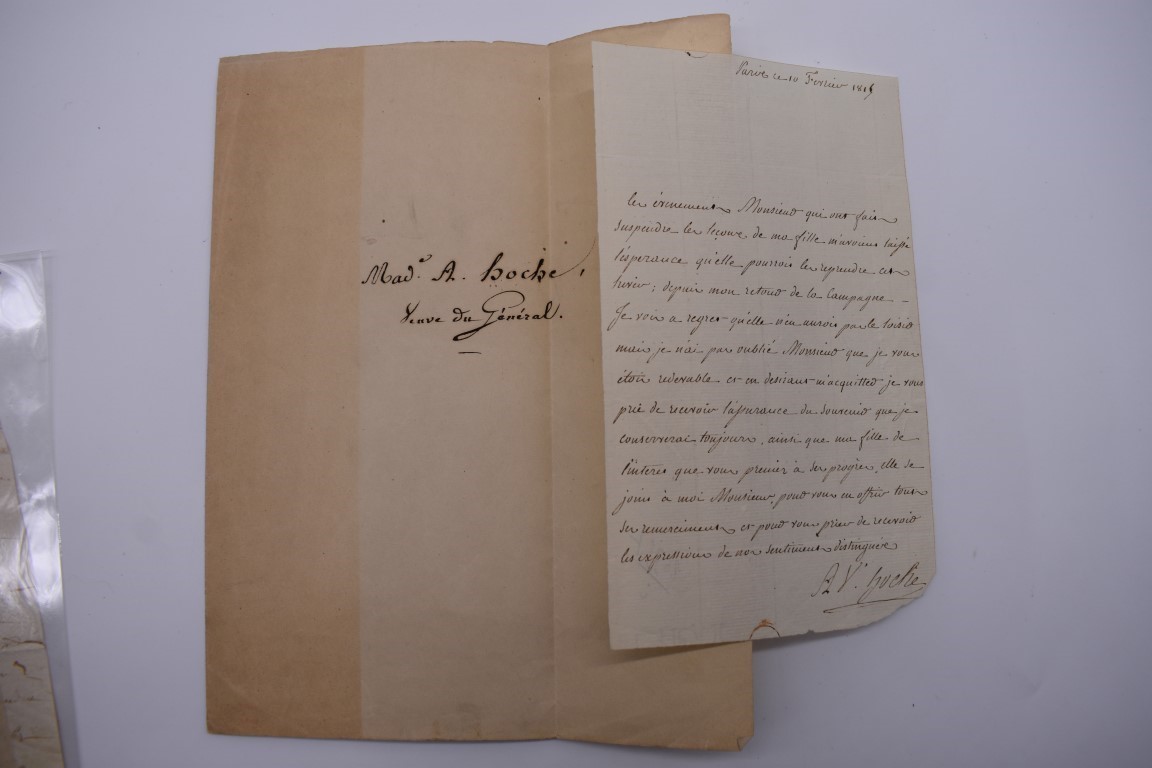 Mad.e A. hoche,
Veuve du Général.
Paris ce 10 Fevrier 1815
les évenements Monsieur qui ont fait
suspendre les leçons de ma fille m'avoient laissé
l'esperance qu'elle pourroit les reprendre cet
hiver; depuis mon retour de la Campagne
Je vois a regret qu'elle n'en auroit pas le loisir
mais je n'ai pas oublié Monsieur que je vous
étois redevable et en desirant m'acquitter je vous
prie de recevoir l'assurance du souvenir que je
conserverai toujours, ainsi que ma fille de
l'interet que vous preniez à ses progrès, elle se
joint à moi Monsieur, pour vous en offrir tous
ses remerciments et pour vous prier de recevoir
les expressions de nos sentiments distingués
A V.e hoche